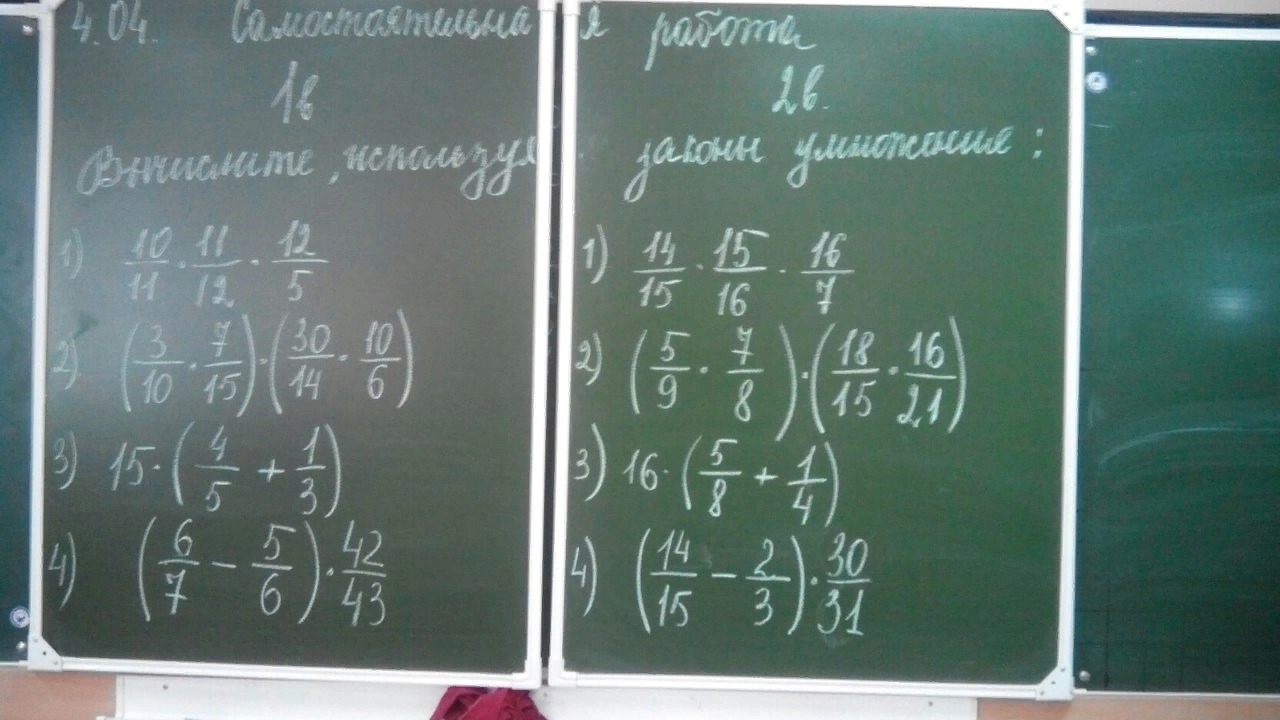 4.04. Самостоятельная работа
1в 2в.
Вычислите, используя законы умножения:
1) 10/11 · 11/12 · 12/5
2) (3/10 · 7/15) · (30/14 · 10/6)
3) 15 · (4/5 + 1/3)
4) (6/7 − 5/6) · 42/43
1) 14/15 · 15/16 · 16/7
2) (5/9 · 7/8) · (18/15 · 16/21)
3) 16 · (5/8 + 1/4)
4) (14/15 − 2/3) · 30/31